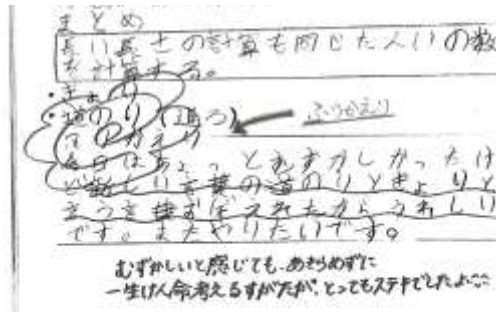 まとめ
長い長さの計算も同じたんいの数
を計算する。
・きょり
・道のり(道ろ)
ふりかえり
ふりかえり
今日はちょっとむずかしかったけ
ど新しい言葉の道のりときょりと
言う言葉おぼえれたからうれしい
です。またやりたいです。
むずかしいと感じても、あきらめずに
一生けん命考えるすがたが、とってもステキでしたよ